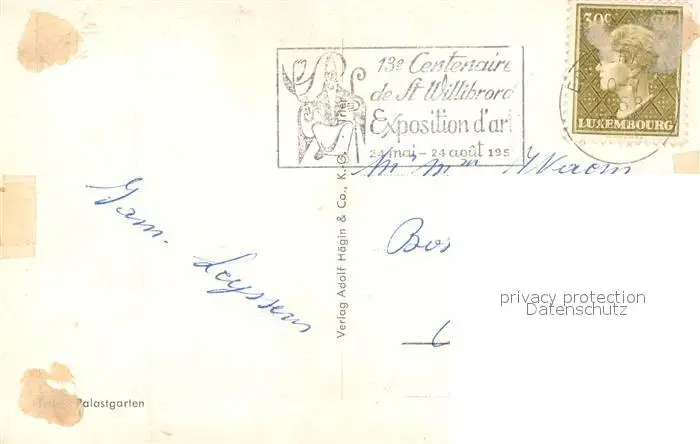 13e Centenaire
de St Willibrord
Exposition d'art
24 mai - 24 août 195
30c
LUXEMBOURG
58
Fam. Leyssens
Verlag Adolf Hägin & Co., K.G. Trier
Palastgarten
privacy protection
Datenschutz